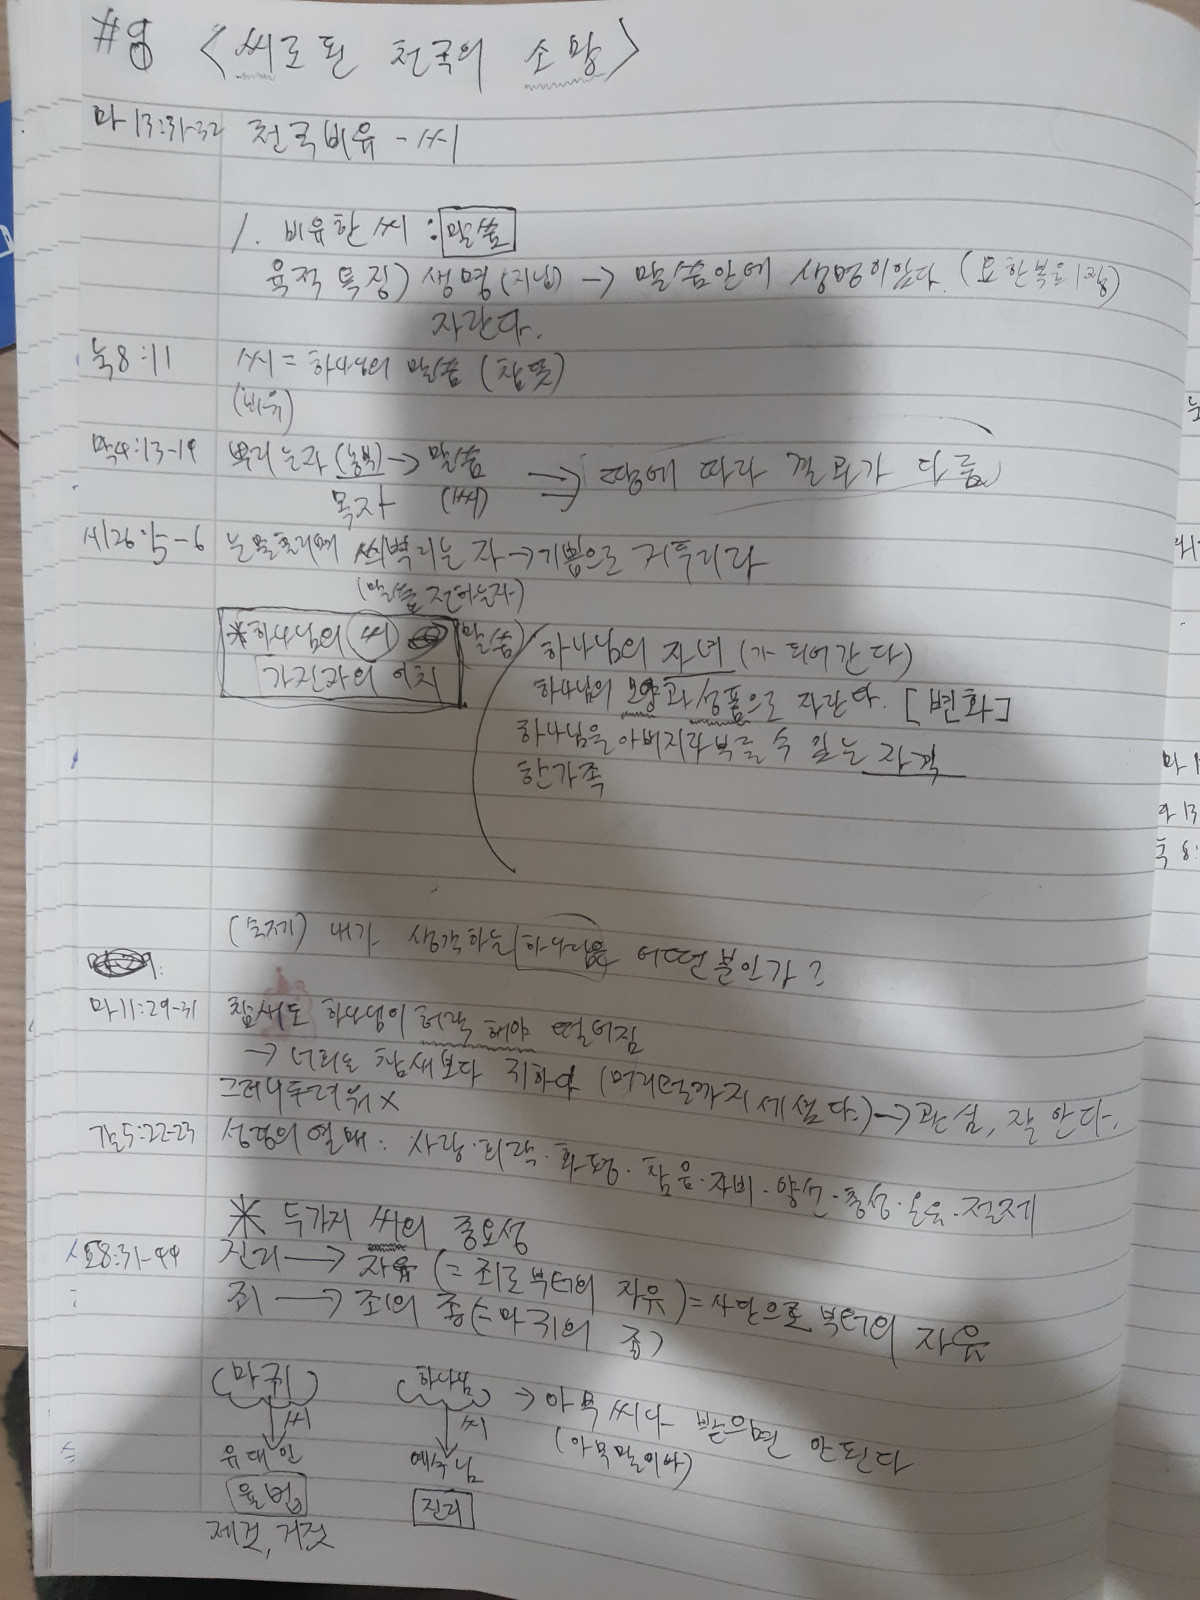 #8 <씨로 된 천국의 소망>
마 13:31-32 천국비유 - 씨
1. 비유한 씨 : 말씀
육적 특징) 생명(지님) → 말씀안에 생명이 있다. (요한복음 1장)
자란다.
눅8:11 씨 = 하나님의 말씀 (참뜻)
(비유)
막4:13-19 뿌리는자 (농부) → 말씀 ⇒ 땅에 따라 결과가 다름
목자 (씨)
시126:5-6 눈물흘리며 씨뿌리는 자 → 기쁨으로 거두리라
(말씀 전하는자)
*하나님의 씨 (말씀) 하나님의 자녀 (가 되어간다)
가진자의 이치 하나님의 모양과 성품으로 자란다. [변화]
하나님을 아버지라 부를 수 있는 자격
한가족
(숙제) 내가 생각하는 하나님은 어떤분인가?
마11:29-31 참새도 하나님이 허락 해야 떨어짐
→ 너희는 참새보다 귀하다 (머리털까지 세셨다.) → 관심, 잘 안다.
그러니 두려워 X
갈5:22-23 성령의 열매 : 사랑·희락·화평·참음·자비·양선·충성·온유·절제
* 두가지 씨의 중요성
요8:31-44 진리 → 자유 (= 죄로부터의 자유) = 사단으로부터의 자유
죄 → 죄의 종(=마귀의 종)
(마귀) (하나님) → 아무 씨나 받으면 안된다
씨 씨 (아무말이나)
유대인 예수님
율법 진리
제것, 거짓